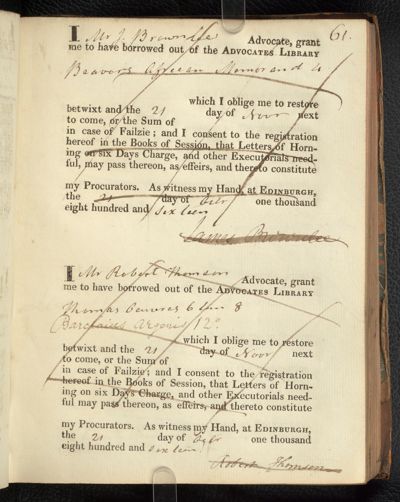 61.
I Mr J. Brownlee Advocate, grant
me to have borrowed out of the ADVOCATES LIBRARY
Beavers African Memoranda 4
which I oblige me to restore
betwixt and the 21 day of Novr next
to come, or the Sum of
in case of Failzie; and I consent to the registration
hereof in the Books of Session, that Letters of Horn-
ing on six Days Charge, and other Executorials need-
ful, may pass thereon, as effeirs, and thereto constitute
my Procurators. As witness my Hand, at EDINBURGH,
the 21 day of one thousand
eight hundred and Sixteen
James Brownlee
I Mr Robert Thomson Advocate, grant
me to have borrowed out of the ADVOCATES LIBRARY
Thomas 6 8
Barclaius Argenis 12o
which I oblige me to restore
betwixt and the 21 day of Novr next
to come, or the Sum of
in case of Failzie; and I consent to the registration
hereof in the Books of Session, that Letters of Horn-
ing on six Days Charge, and other Executorials need-
ful may pass thereon, as effeirs, and thereto constitute
my Procurators. As witness my Hand, at EDINBURGH,
the 21 day of one thousand
eight hundred and sixteen
Robert Thomson